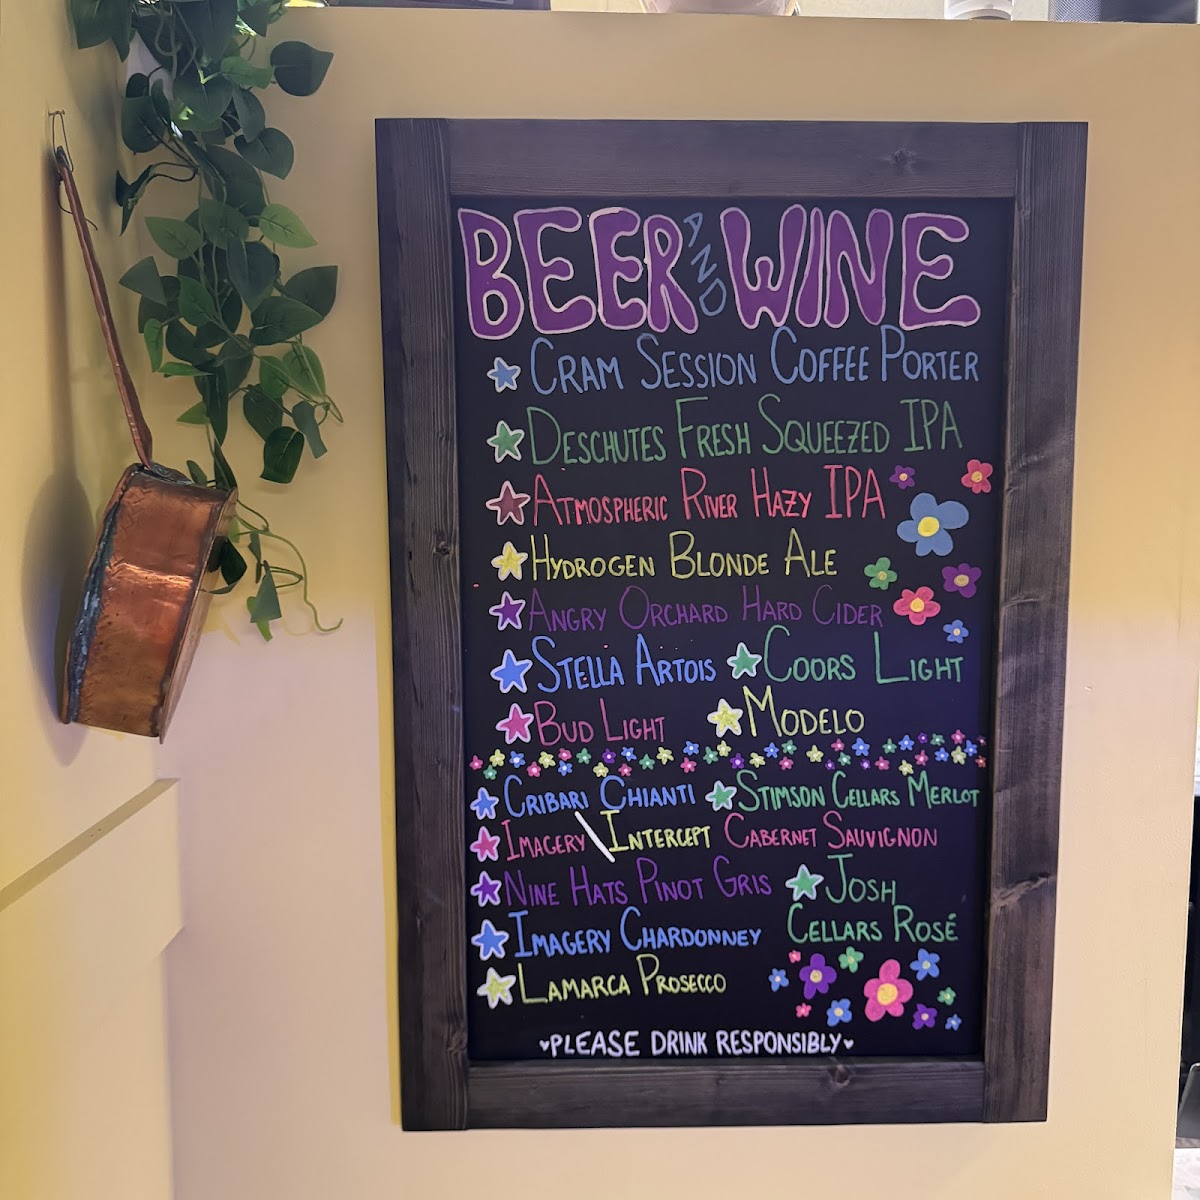 BEER AND WINE
CRAM SESSION COFFEE PORTER
DESCHUTES FRESH SQUEEZED IPA
ATMOSPHERIC RIVER HAZY IPA
HYDROGEN BLONDE ALE
ANGRY ORCHARD HARD CIDER
STELLA ARTOIS COORS LIGHT
BUD LIGHT MODELO
CRIBARI CHIANTI STIMSON CELLARS MERLOT
IMAGERY \ INTERCEPT CABERNET SAUVIGNON
NINE HATS PINOT GRIS JOSH
IMAGERY CHARDONNEY CELLARS ROSÉ
LAMARCA PROSECCO
♥PLEASE DRINK RESPONSIBLY♥